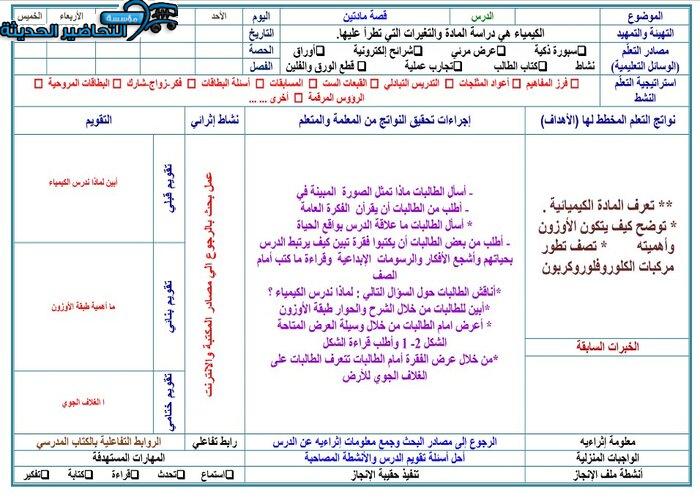 مؤسسة
التحاضير الحديثة
الموضوع
الدرس
قصة مادتين
اليوم
الأحد
الأربعاء
الخميس
التهيئة والتمهيد
الكيمياء هي دراسة المادة والتغيرات التي تطرأ عليها.
التاريخ
مصادر التعلم
(الوسائل التعليمية)
□سبورة ذكية □عرض مرئي □شرائح إلكترونية □أوراق
نشاط □كتاب الطالب □تجارب عملية □ قطع الورق والفلين
الحصة
الفصل
استراتيجية التعلم
النشط
□ فرز المفاهيم □ أعواد المثلجات □ التدريس التبادلي □ القبعات الست □ المسابقات □ أسئلة البطاقات □ فكر-زواج-شارك □ البطاقات المروحية
□ الرؤوس المرقمة □ أخرى ... ...
نواتج التعلم المخطط لها (الأهداف)
إجراءات تحقيق النواتج من المعلمة والمتعلم
نشاط إثرائي
التقويم
** تعرف المادة الكيميائية .
* توضح كيف يتكون الأوزون
وأهميته * تصف تطور
مركبات الكلوروفلوروكربون
الخبرات السابقة
- أسأل الطالبات ماذا تمثل الصورة المبينة في
- أطلب من الطالبات أن يقرأن الفكرة العامة
* أسأل الطالبات ما علاقة الدرس بواقع الحياة
- أطلب من بعض الطالبات أن يكتبوا فقرة تبين كيف يرتبط الدرس
بحياتهم وأشجع الأفكار والرسومات الإبداعية وقراءة ما كتب أمام
الصف
*أناقش الطالبات حول السؤال التالي : لماذا ندرس الكيمياء ؟
*أبين للطالبات من خلال الشرح والحوار طبقة الأوزون
* أعرض امام الطالبات من خلال وسيلة العرض المتاحة
الشكل 2- 1 وأطلب قراءة الشكل
*من خلال عرض الفقرة أمام الطالبات تتعرف الطالبات على
الغلاف الجوي للأرض
عمل بحث بالرجوع الي مصادر المكتبة والانترنت
تقويم قبلي
أبين لماذا ندرس الكيمياء
تقويم بنائي
ما أهمية طبقة الأوزون
تقويم ختامي
ا الغلاف الجوي
معلومة إثرائيه
الرجوع إلى مصادر البحث وجمع معلومات إثرائيه عن الدرس
رابط تفاعلي
الروابط التفاعلية بالكتاب المدرسي
الواجبات المنزلية
أحل أسئلة تقويم الدرس والأنشطة المصاحبة
المهارات المستهدفة
أنشطة ملف الإنجاز
تنفيذ حقيبة الإنجاز
□استماع □تحدث □قراءة □كتابة □تفكير